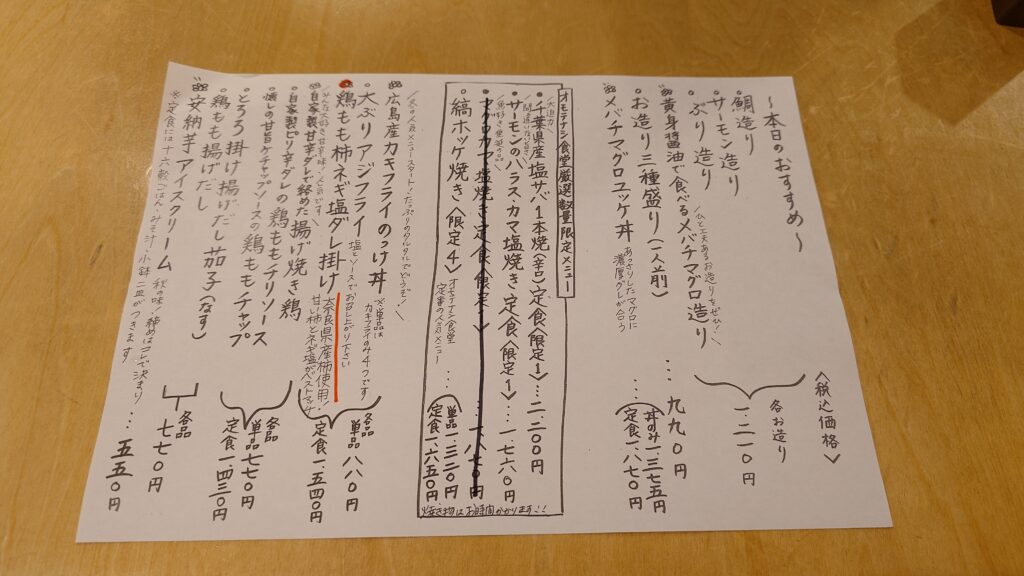 ～本日のおすすめ～
〈税込価格〉
・鯛造り
・サーモン造り
・ぶり造り
・黄身醤油で食べるメバチマグロ造り
＼ひと工夫あるお造りをぜひ！／
各お造り
一、二一〇円
・お造り三種盛り（一人前）
…九九〇円
・メバチマグロユッケ丼
あっさりしたマグロに
濃厚ダレが合う
…
丼のみ一、三七五円
定食一、八七〇円
オモテナシ食堂厳選数量限定メニュー
＼大迫力／
・千葉県産塩サバ1本焼（辛口）定食〈限定1〉…二、二〇〇円
間違いなし
・サーモンのハラス・カマ塩焼き定食〈限定1〉…一、七六〇円
・マグロカマ塩焼き定食〈限定
・縞ホッケ焼き〈限定4〉
オモテナシ食堂
定番の人気メニュー
…
単品一、三二〇円
定食一、六五〇円
焼き物はお時間かかります！！
・広島産カキフライのっけ丼
※単品は
カキフライのみ4つです
・大ぶりアジフライ
塩とソースでお召し上がり下さい
・鶏もも柿ネギ塩ダレ掛け
奈良県産柿使用！
甘い柿とネギ塩がベストマッチ
各品
単品八八〇円
定食一、五四〇円
・自家製甘辛ダレを絡めた揚げ焼き鶏
・自家製ピリ辛ダレの鶏ももチリソース
・懐しの甘旨ケチャップソースの鶏ももチャップ
各品
単品七七〇円
定食一、四三〇円
・とろろ掛け揚げだし茄子（なす）
・鶏もも揚げだし
各品
七七〇円
・安納芋アイスクリーム
秋の味！締めはコレで決まり
…五五〇円
※定食には十六穀ごはん・みそ汁・小鉢二皿がつきます